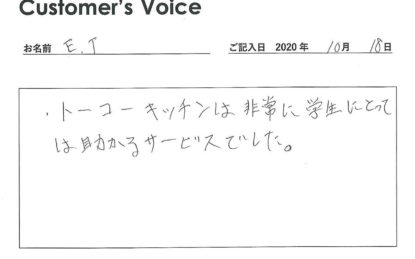 Customer's Voice
お名前 E.T ご記入日 2020年 10月 18日
・トーコーキッチンは非常に学生にとって
は助かるサービスでした。